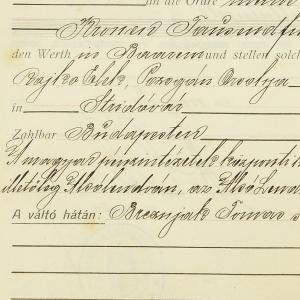 an die Ordre
Kronen Tausend
den Werth in Baarem und stellen solch
Rajkó Elek, Pozogán Orsolya
in Stridóvár
Zahlbar Budapesten
A magyar pénzintézetek központi
illetőleg Alsólendván, az Alsó Lend
A váltó hátán: Breznjak Tomas s